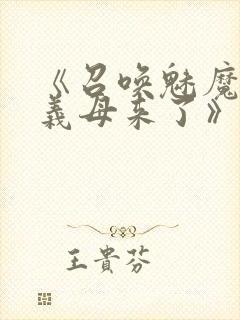 《召唤魅魔
義母来了》
王貴芬